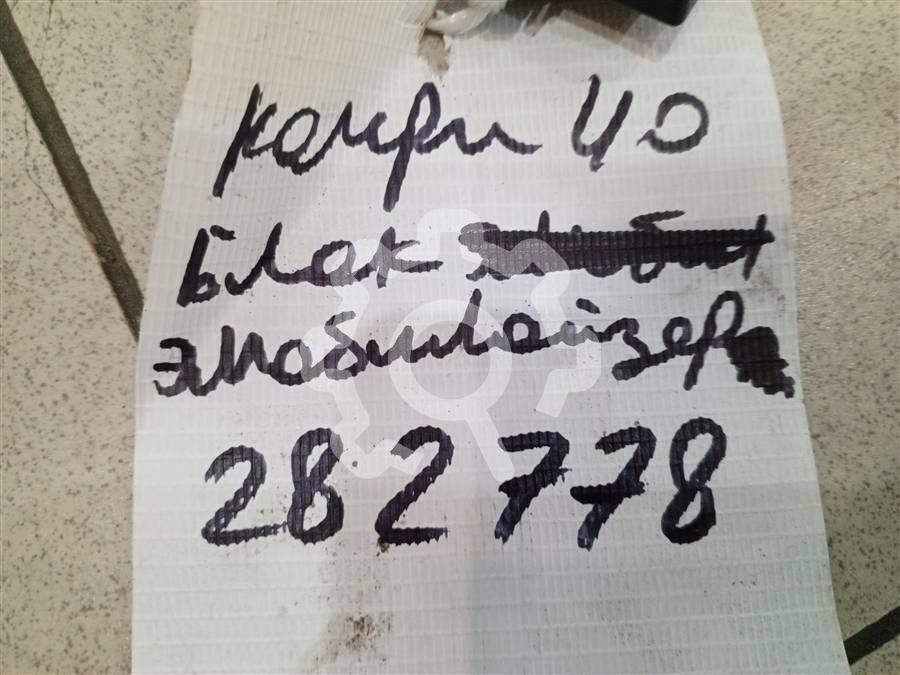 камри 40
Блок
эмобилайзер
282778